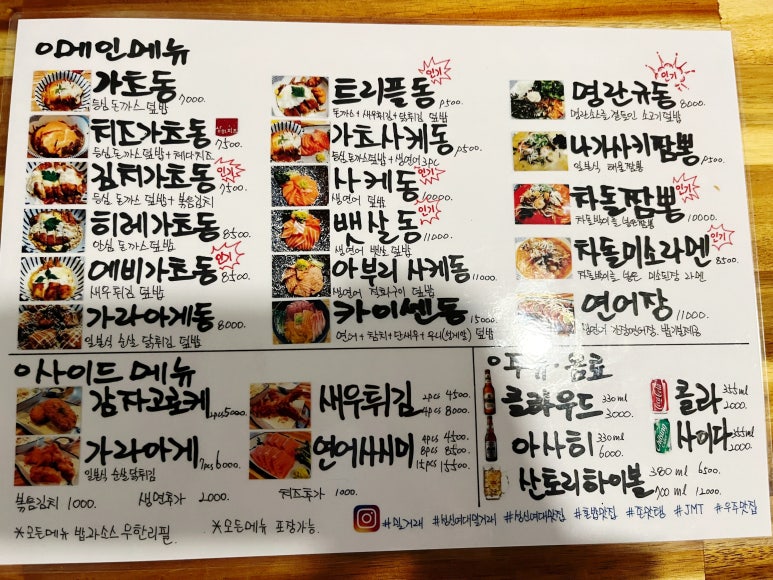 메인메뉴
가츠동
등심 돈까스 덮밥 7000.
치즈가츠동 7500.
등심 돈까스덮밥+체다치즈
김치가츠동 인기 7500.
등심 돈까스덮밥+볶음김치
히레가츠동 8500.
안심 돈까스 덮밥
에비가츠동 인기 8500.
새우튀김 덮밥
가라아게동 8000.
일본식 순살 닭튀김 덮밥
트리플동 인기 9500.
돈까스+새우튀김+닭튀김 덮밥
가츠사케동 9500.
등심 돈까스덮밥+생연어3pc
사케동 인기
생연어 덮밥
밴살동 인기 11000.
생연어 뱃살 덮밥
아부리 사케동 11000.
생연어 직화구이 덮밥
카이센동 15000.
연어+참치+단새우+우니(성게알) 덮밥
명란규동 인기 8000.
명란소스를 곁들인 소고기덮밥
나가사키짬뽕 9500.
일본식 해물짬뽕
차돌짬뽕 인기 10000.
차돌미소라멘 인기 8500.
차돌박이를 넣은 미소된장 라멘
연어장 11000.
생연어 간장연어장. 밥 별도제공
사이드 메뉴
감자고로케 2pcs 5000.
가라아게 7pcs 6000.
일본식 순살닭튀김
새우튀김 2pcs 4500.
4pcs 8000.
연어사시미 4pcs 4500.
8pcs 8500.
15pcs 15500.
볶음김치 1000. 생연어추가 2000. 치즈추가 1000.
주류·음료
클라우드 330ml 3000.
아사히 330ml 6000.
산토리하이볼 380ml 6500.
700ml 12000.
콜라 355ml 2000.
사이다 355ml 2000.
※모든메뉴 밥과소스 무한리필. ※모든메뉴 포장가능.
#밀거래 #성신여대밀거래 #성신여대맛집 #혼밥맛집 #존맛탱 #JMT #우주맛집